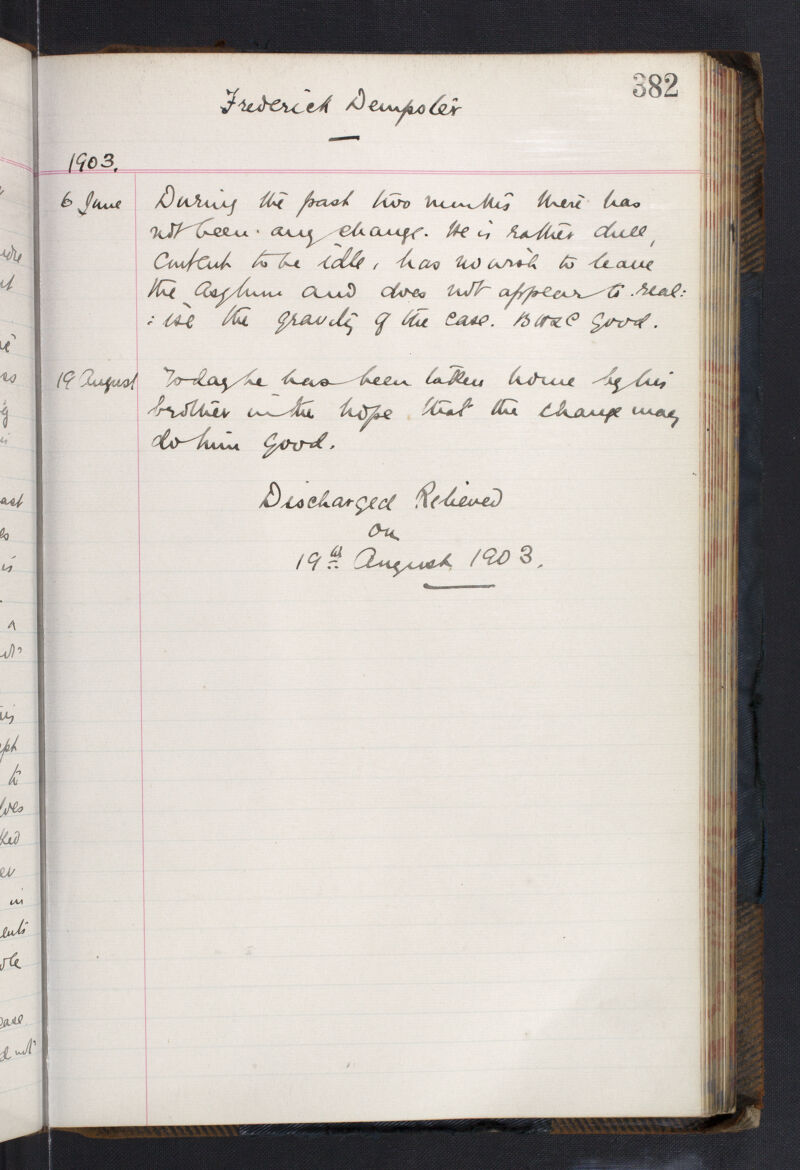 382
Frederick Dempster
1903.
6 June During the past two months there has
not been any change. He is rather dull,
content to be idle, has no wish to leave
the Asylum and does not appear to real:
:ise the gravity of the case. B H & C Good.
19 August Today he has been taken home by his
brother in the hope that the change may
do him good.
Discharged Relieved
on
19th August 1903.